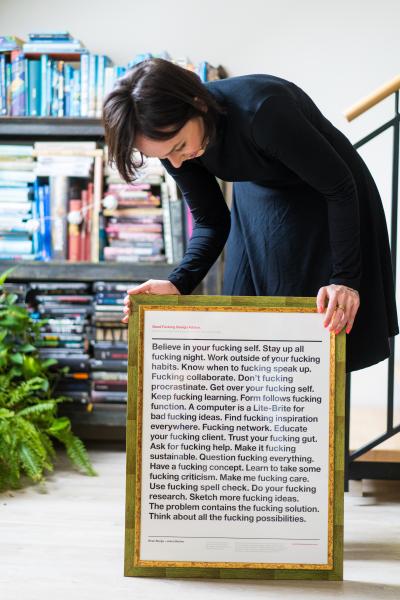 Good Fucking Design Advice.
Believe in your fucking self. Stay up all
fucking night. Work outside of your fucking
habits. Know when to fucking speak up.
Fucking collaborate. Don't fucking
procrastinate. Get over your fucking self.
Keep fucking learning. Form follows fucking
function. A computer is a Lite-Brite for
bad fucking ideas. Find fucking inspiration
everywhere. Fucking network. Educate
your fucking client. Trust your fucking gut.
Ask for fucking help. Make it fucking
sustainable. Question fucking everything.
Have a fucking concept. Learn to take some
fucking criticism. Make me fucking care.
Use fucking spell check. Do your fucking
research. Sketch more fucking ideas.
The problem contains the fucking solution.
Think about all the fucking possibilities.